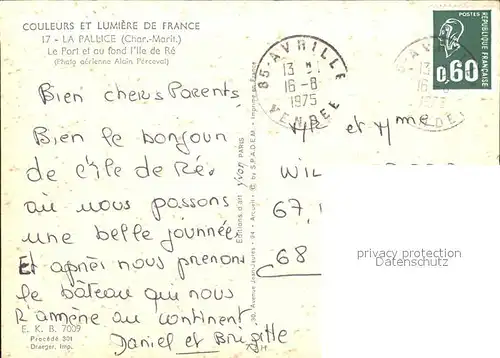 COULEURS ET LUMIÈRE DE FRANCE
17 - LA PALLICE (Char.-Marit.)
Le Port et au fond l'Ile de Ré
(Photo aérienne Alain Perceval)
Bien chers Parents
Bien le bonjour
de l'ile de Ré.
au nous passons
une belle journée
Et après nous prenons
le bâteau qui nous
R'amène au continent
Daniel et Brigitte
E. K. B. 7009
Procédé 301
Draeger, Imp.
Editions d'art Yvon PARIS
© by S.P.A.D.E.M.
85 AVRILLE
13 H
16-8
1975
VENDEE
POSTES
0,60
REPUBLIQUE FRANÇAISE
Mr et Mme
WIL
67,
68
privacy protection
Datenschutz